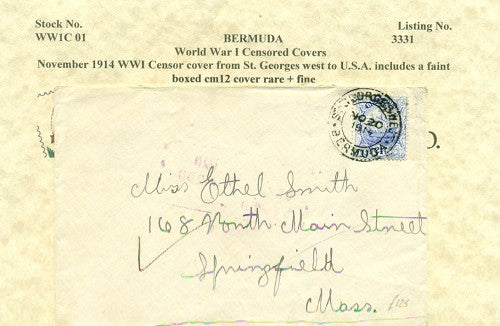 Stock No.
WW1C 01
BERMUDA
Listing No.
3331
World War I Censored Covers
November 1914 WWI Censor cover from St. Georges west to U.S.A. includes a faint
boxed cm12 cover rare + fine
ST. GEORGES WEST
NO 20
1914
BERMUDA
D.
Miss Ethel Smith
168 North Main Street
Springfield
Mass.
£125